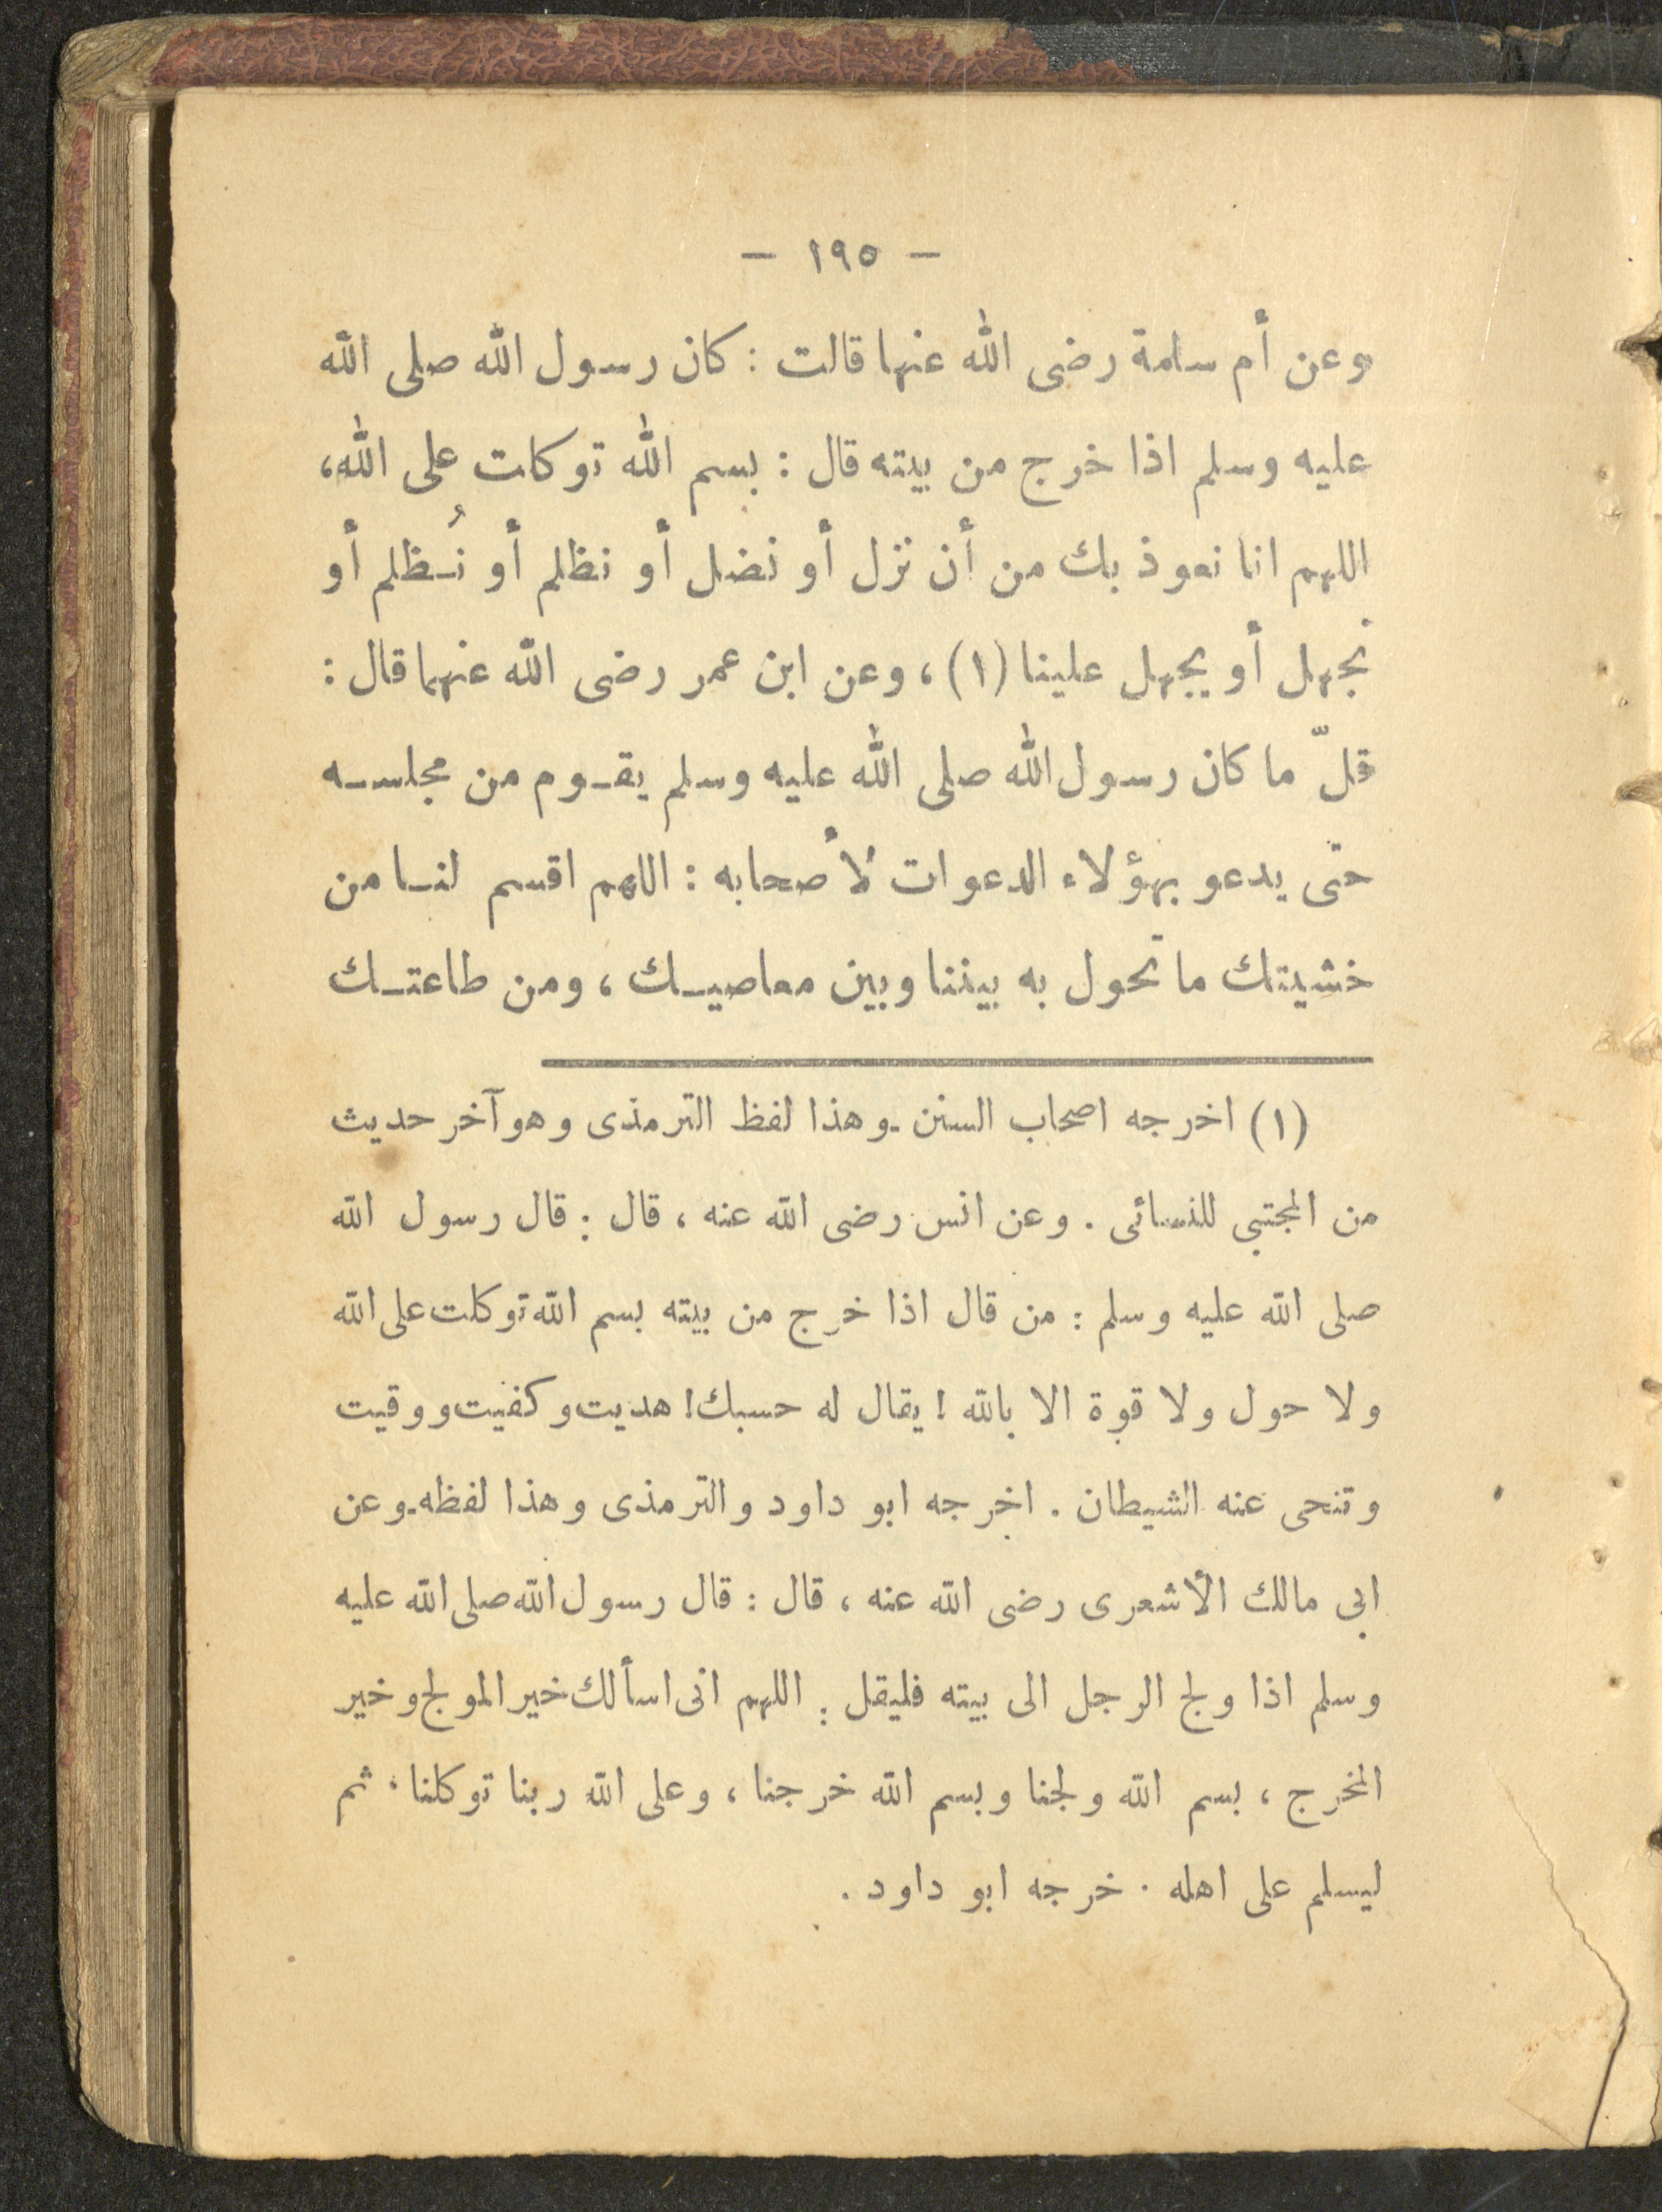 — ١٩٥ —
وعن أم سلمة رضى الله عنها قالت : كان رسول الله صلى الله
عليه وسلم اذا خرج من بيته قال : بسم الله توكلت على الله،
اللهم انا نعوذ بك من أن نزل أو نضل أو نظلم أو نُظلم أو
نجهل أو يجهل علينا (١) ، وعن ابن عمر رضى الله عنهما قال :
قلّ ما كان رسول الله صلى الله عليه وسلم يقوم من مجلسه
حتى يدعو بهؤلاء الدعوات لأصحابه : اللهم اقسم لنا من
خشيتك ما تحول به بيننا وبين معاصيك ، ومن طاعتك
(١) اخرجه اصحاب السنن ـ وهذا لفظ الترمذى وهو آخر حديث
من المجتبى للنسائى . وعن انس رضى الله عنه ، قال : قال رسول الله
صلى الله عليه وسلم : من قال اذا خرج من بيته بسم الله توكلت على الله
ولا حول ولا قوة الا بالله ! يقال له حسبك ! هديت وكفيت ووقيت
وتنحى عنه الشيطان . اخرجه ابو داود والترمذى وهذا لفظه ـ وعن
ابى مالك الأشعرى رضى الله عنه ، قال : قال رسول الله صلى الله عليه
وسلم اذا ولج الرجل الى بيته فليقل : اللهم انى اسألك خير المولج وخير
المخرج ، بسم الله ولجنا وبسم الله خرجنا ، وعلى الله ربنا توكلنا ، ثم
ليسلم على اهله . خرجه ابو داود .